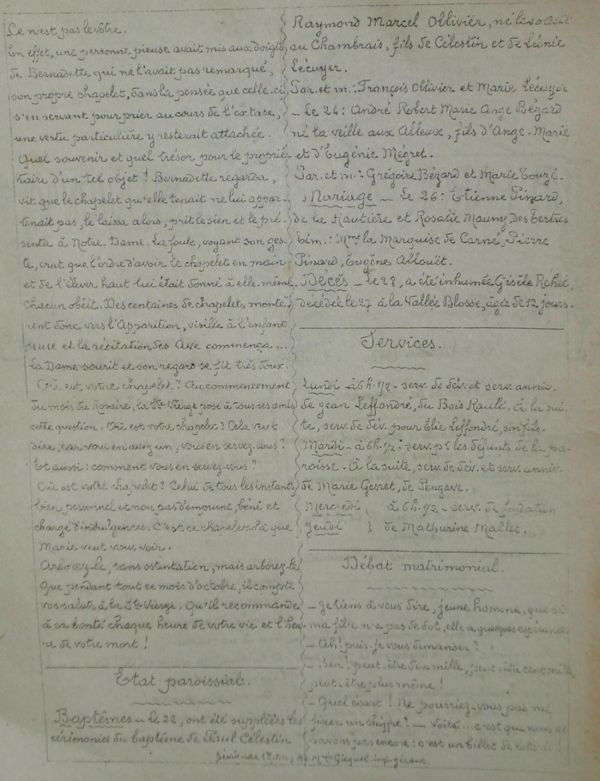 Ce n'est pas le vôtre.
En effet, une personne pieuse avait mis aux doigts
de Bernadette qui ne l'avait pas remarqué,
son propre chapelet, dans la pensée que celle-ci
s'en servant pour prier au cours de l'extase,
une vertu particulière y resterait attachée.
Quel souvenir et quel trésor pour le proprié-
taire d'un tel objet ! Bernadette regarda,
vit que le chapelet qu'elle tenait ne lui appar-
tenait pas, le laissa alors, prit le sien et le pré-
senta à Notre-Dame. La foule, voyant son ges-
te, crut que l'ordre d'avoir le chapelet en main
et de l'élever haut lui était donné à elle-même,
chacun obéit. Des centaines de chapelets montè-
rent donc vers l'Apparition, visible à l'enfant
seule et la récitation des Ave commença...
La Dame sourit et son regard se fit très doux.
Où est votre chapelet ? Au commencement
du mois du Rosaire, la Ste Vierge pose à tous ses amis
cette question. Où est votre chapelet ? Cela veut
dire, car vous en avez un, vous en servez-vous ?
Et aussi : comment vous en servez-vous ?
Où est votre chapelet ? Celui de tous les instants
bien personnel et non pas d'emprunt, béni et
chargé d'indulgences. C'est ce chapelet-là que
Marie veut vous voir.
Arborez-le, sans ostentation, mais arborez-le
Que pendant tout ce mois d'octobre, il compte
vos saluts à la Ste Vierge. Qu'il recommande
à sa bonté chaque heure de votre vie et l'heu-
re de votre mort !
Etat paroissial.
Baptêmes - le 22, ont été suppléées les
cérémonies du baptême de Paul Célestin
Raymond Marcel Ollivier, né le 20 Août
au Chambrais, fils de Célestin et de Léonie
Lécuyer.
Par. et m. : François Ollivier et Marie Lécuyer
- Le 24 : André Robert Marie Ange Bégard
né la veille aux Alleux, fils d'Ange-Marie
et d'Eugénie Mégret.
Par. et m. : Grégoire Bégard et Marie Touzé.
Mariage - Le 26 : Étienne Pinard,
de la Hautière et Rosalie Mauny des Tertres
tém. : Mme la Marquise de Carné, Pierre
Pinard, Eugène Allouët.
Décès - Le 29, a été inhumée Gisèle
décédée le 27 à la Vallée Blosse, âgée de 12 jours.
Services.
Lundi - à 6h. 1/2 - serv. de dév. et serv. anniv.
de Jean Leffondré, du Bois Raulé. À la sui-
te, serv. de dév. pour Elie Leffondré, son fils.
Mardi - à 6h. 1/2 - serv. pr les défunts de la pa-
roisse. À la suite, serv. de dév. et serv. anniv.
de Marie Gesret, de Pengave.
Mercredi } à 6h. 1/2 - serv. de fondation
Jeudi } de Mathurine Mallet.
Débat matrimonial.
- Je tiens à vous dire, jeune homme, que si
ma fille n'a pas de dot, elle a quelques espérances.
- Ah ! puis-je vous demander ?
- Ben ! peut-être dix mille, peut-être cent mille,
peut-être plus même !
- Quel écart ! Ne pourriez-vous pas me
fixer un chiffre ? - Voilà... c'est que nous ne
savons pas encore : c'est un billet de loterie !